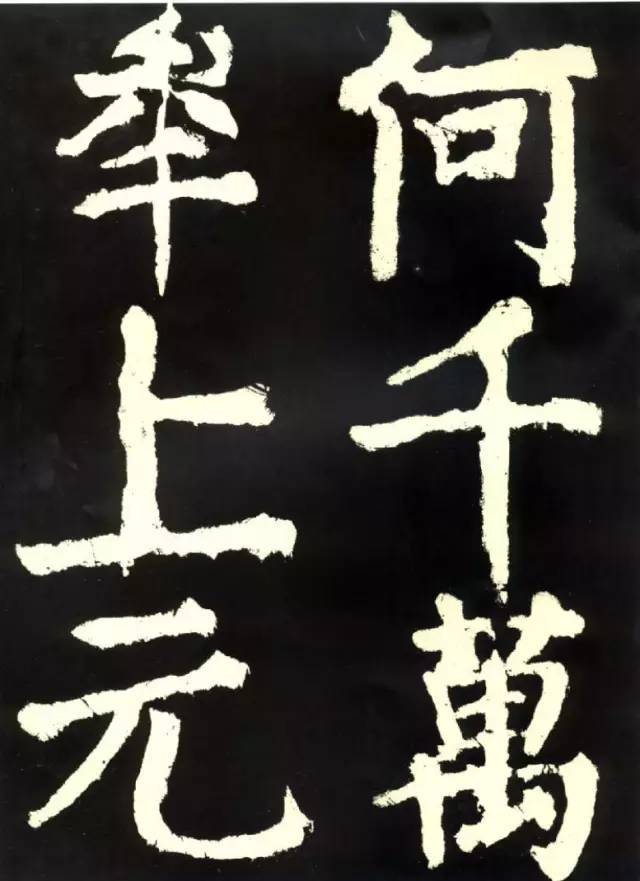 何千萬
秊上元